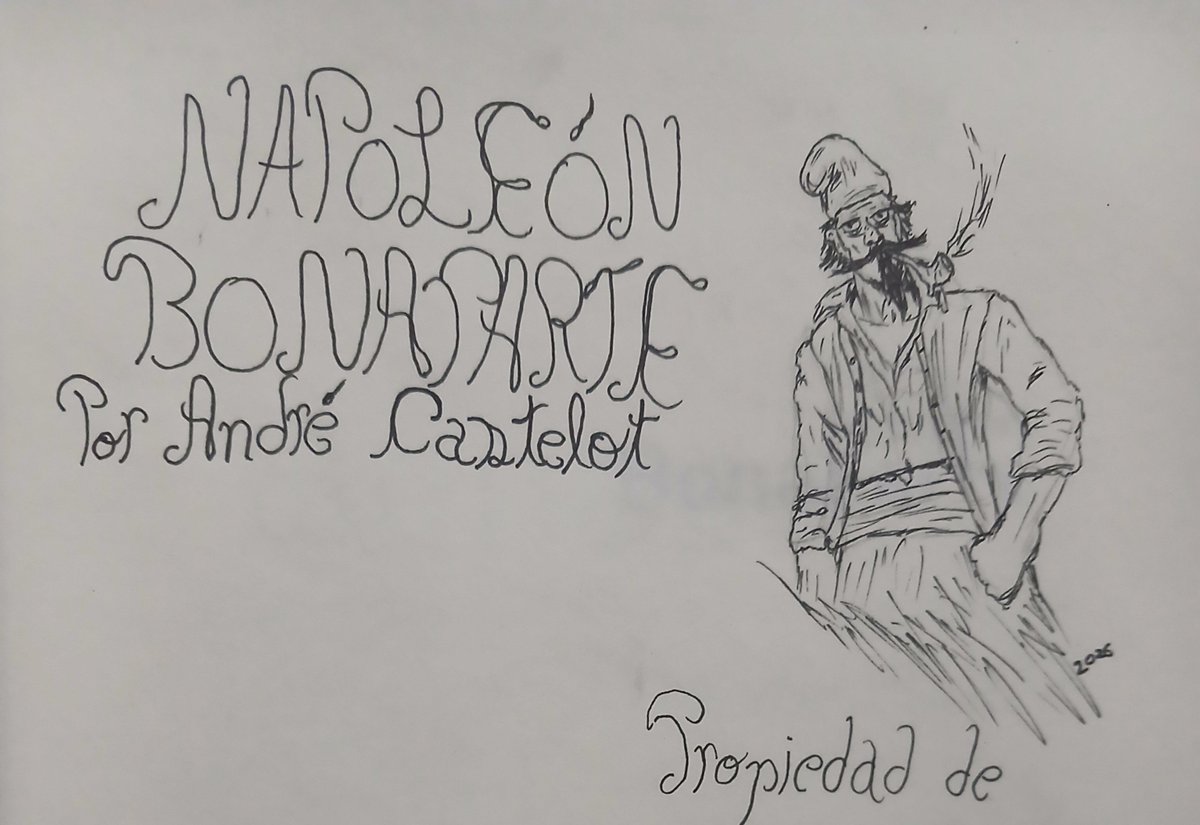 NAPOLEÓN
BONAPARTE
Por André Castelot
2026
Propiedad de